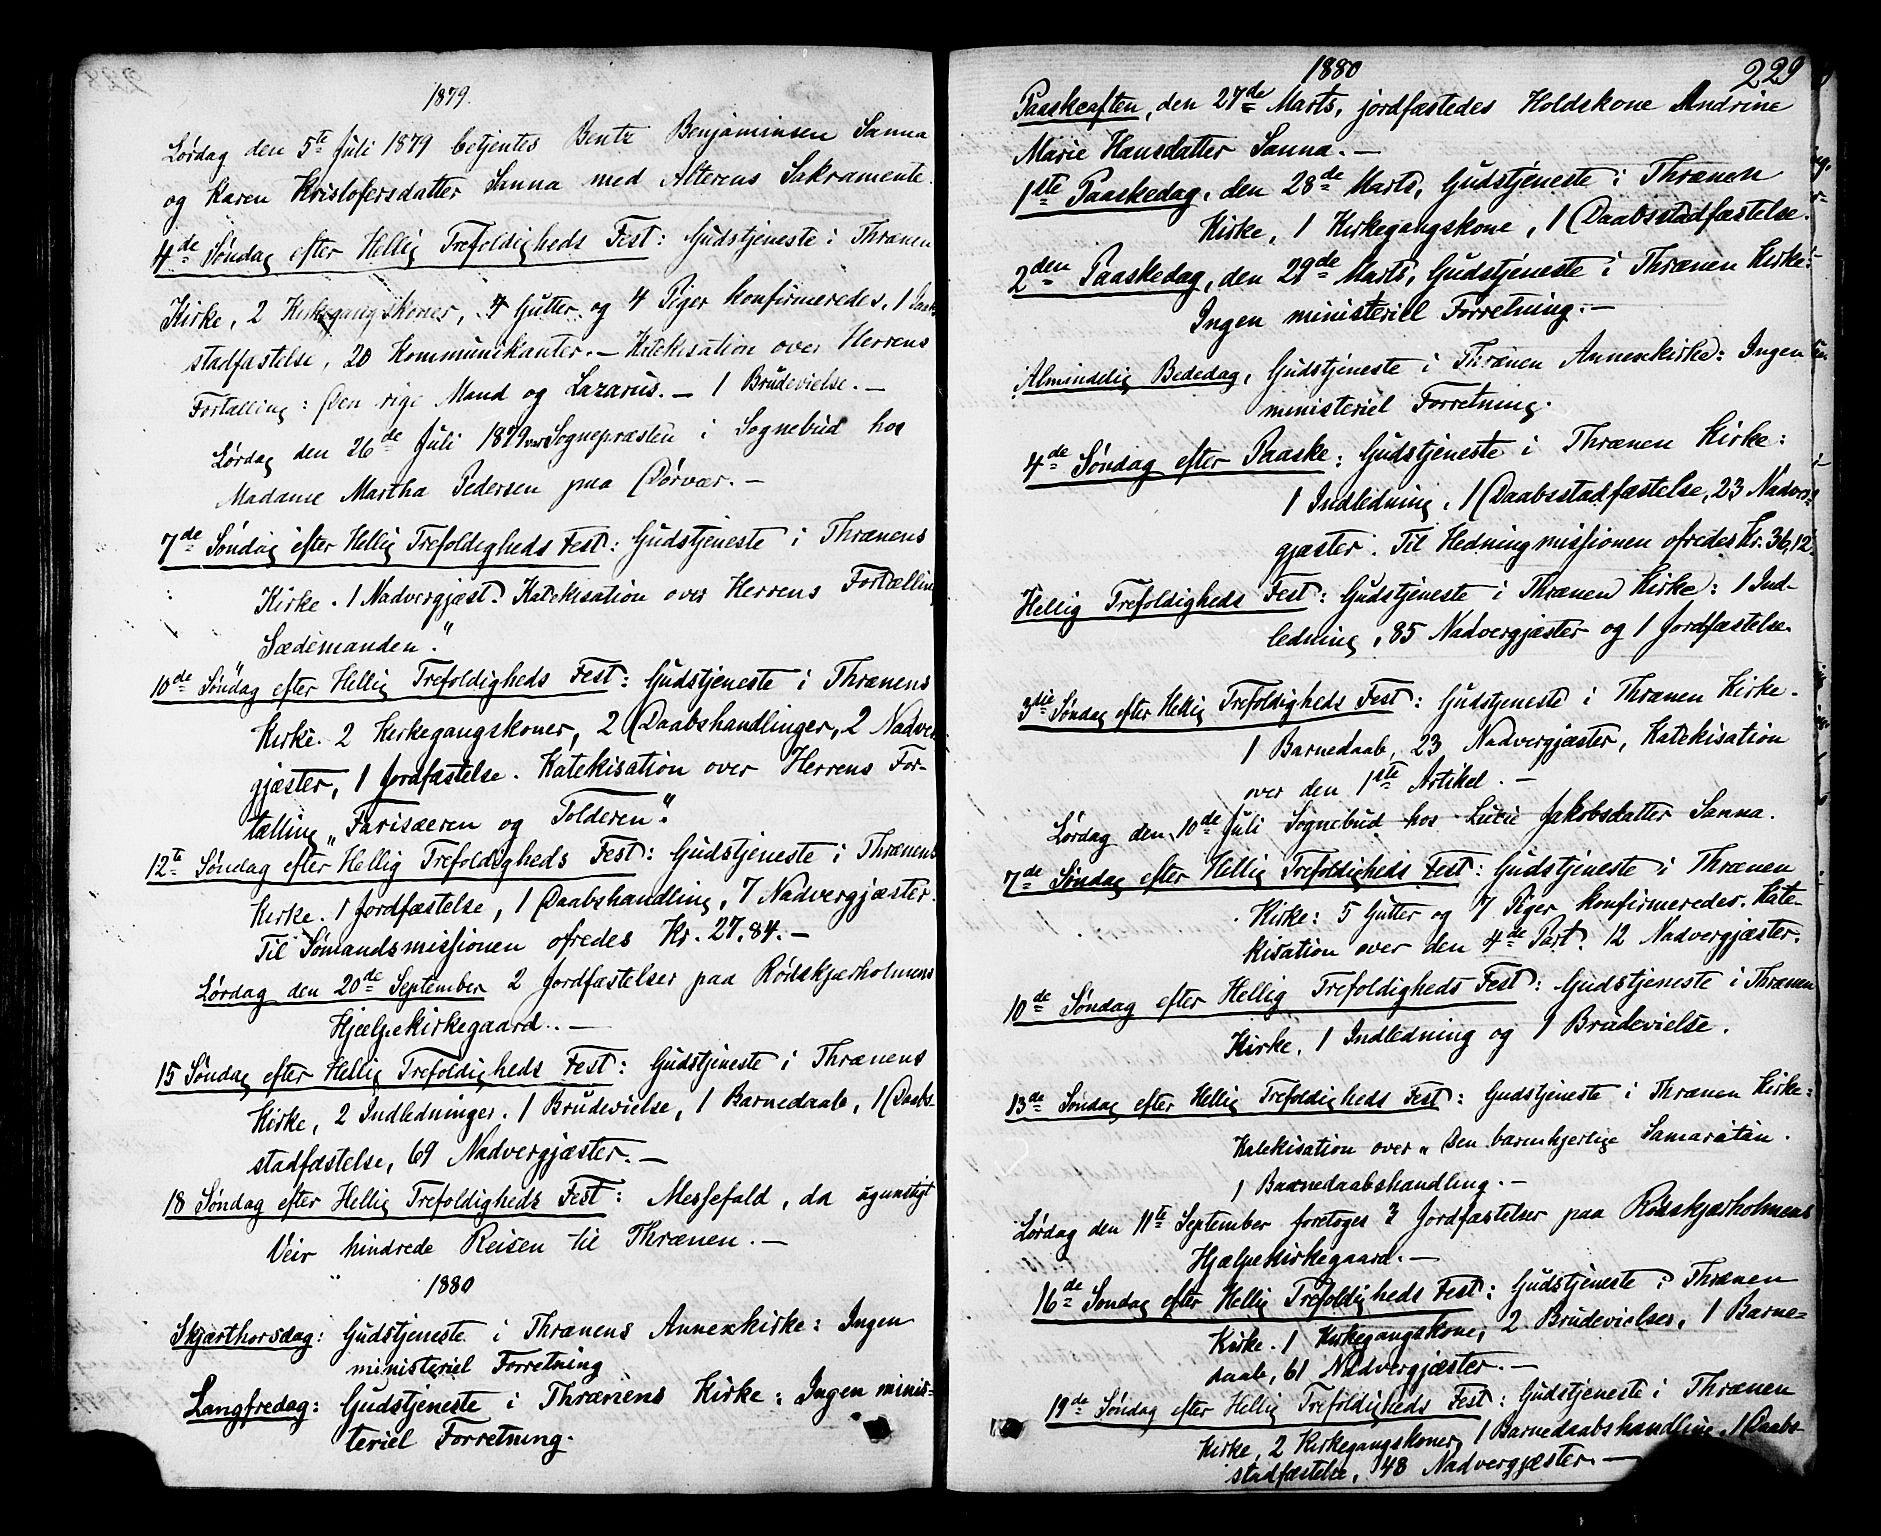 1879.
Lørdag den 5te Juli 1879 betjentes Bentz Benjaminsen Sanna
og Karen Kristofersdatter Sanna med Alterens Sakramente.
4de Søndag efter Hellig Trefoldigheds Fest: Gudstjeneste i Thrænen
Kirke, 2 Kirkegangskoner, 4 Gutter og 4 Piger konfirmeredes, 1 Daab-
stadfæstelse, 20 Kommunikanter. — Katekisation over Herrens
Fortælling: Den rige Mand og Lazarus. — 1 Brudevielse. —
Lørdag den 26de Juli 1879 var Sognepræsten i Sognebud hos
Madame Martha Pedersen paa Dørvær. —
7de Søndag efter Hellig Trefoldigheds Fest: Gudstjeneste i Thrænens
Kirke. 1 Nadvergjæst. Katekisation over Herrens Fortælling
Sædemanden".
10de Søndag efter Hellig Trefoldigheds Fest: Gudstjeneste i Thrænens
Kirke. 2 Kirkegangskoner, 2 Daabshandlinger, 2 Nadver-
gjæster, 1 Jordfæstelse. Katekisation over Herrens For-
tælling „Farisæeren og Tolderen".
12te Søndag efter Hellig Trefoldigheds Fest: Gudstjeneste i Thrænens
Kirke. 1 Jordfæstelse, 1 Daabshandling, 7 Nadvergjæster.
Til Sømandsmissionen ofredes Kr. 27,84. —
Lørdag den 20de September 2 Jordfæstelser paa Rødskjærholmens
Hjælpekirkegaard. —
15 Søndag efter Hellig Trefoldigheds Fest: Gudstjeneste i Thrænens
Kirke, 2 Indledninger. 1 Brudevielse, 1 Barnedaab, 1 Daabs-
stadfæstelse, 69 Nadvergjæster. —
18 Søndag efter Hellig Trefoldigheds Fest: Messefald, da ugunstigt
Veir hindrede Reisen til Thrænen. —
1880
Skjærthorsdag: Gudstjeneste i Thrænens Annexkirke: Ingen
ministeriel Forretning
Langfredag: Gudstjeneste i Thrænens Kirke: Ingen minis-
teriel Forretning.
1880
229
Paaskeaften, den 27de Marts, jordfæstedes Holdskone Andrine
Marie Hansdatter Sanna. —
1ste Paaskedag, den 28de Marts, Gudstjeneste i Thrænen
Kirke, 1 Kirkegangskone, 1 Daabsstadfæstelse.
2den Paaskedag, den 29de Marts, Gudstjeneste i Thrænen Kirke:
Ingen ministeriel Forretning. —
Almindelig Bededag, Gudstjeneste i Thrænen Annexkirke: Ingen
ministeriel Forretning.
4de Søndag efter Paaske: Gudstjeneste i Thrænen Kirke:
1 Indledning, 1 Daabsstadfæstelse, 23 Nadver-
gjæster. Til Hedningmissionen ofredes Kr. 36,12.
Hellig Trefoldigheds Fest: Gudstjeneste i Thrænen Kirke: 1 Ind-
ledning, 85 Nadvergjæster og 1 Jordfæstelse.
3die Søndag efter Hellig Trefoldigheds Fest: Gudstjeneste i Thrænen Kirke.
1 Barnedaab, 23 Nadvergjæster, Katekisation
over den 1ste Artikel. —
Lørdag den 10de Juli Sognebud hos Lucie Jakobsdatter Sanna.
7de Søndag efter Hellig Trefoldigheds Fest: Gudstjeneste i Thrænen
Kirke: 5 Gutter og 7 Piger konfirmeredes. Kate-
kisation over den 4de Part. 12 Nadvergjæster.
10de Søndag efter Hellig Trefoldigheds Fest: Gudstjeneste i Thrænen
Kirke, 1 Indledning og 1 Brudevielse.
13de Søndag efter Hellig Trefoldigheds Fest: Gudstjeneste i Thrænen Kirke:
Katekisation over „Den barmhjertige Samaritan.
1 Barnedaabshandling. —
Lørdag den 11te September foretoges 3 Jordfæstelser paa Rødskjærholmens
Hjælpekirkegaard. —
16de Søndag efter Hellig Trefoldigheds Fest: Gudstjeneste i Thrænen
Kirke. 1 Kirkegangskone, 2 Brudevielser, 1 Barne-
daab, 61 Nadvergjæster. —
19de Søndag efter Hellig Trefoldigheds Fest: Gudstjeneste i Thrænen
Kirke, 2 Kirkegangskoner, 1 Barnedaabshandling, 1 Daabs-
stadfæstelse, 48 Nadvergjæster. —